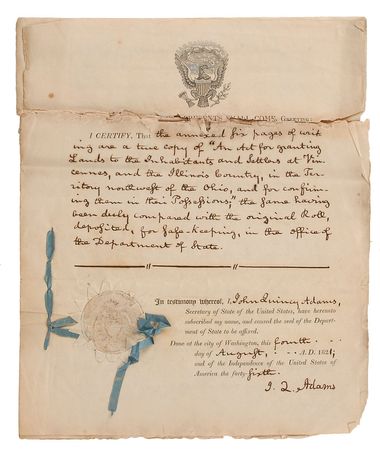 PRESENTS SHALL COME, GREETING:
I CERTIFY, That the annexed six pages of writ
ing are a true copy of "An Act for granting
Lands to the Inhabitants and settlers at Vin
cennes, and the Illinois Country, in the Ter
ritory northwest of the Ohio, and for confirm
ing them in their Possessions;" the same having
been duly compared with the original Roll,
deposited, for safe-keeping, in the office of
the Department of State.
In testimony whereof, I, John Quincy Adams,
Secretary of State of the United States, have hereunto
subscribed my name, and caused the seal of the Depart-
ment of State to be affixed.
Done at the city of Washington, this fourth
day of August, A.D. 1821;
and of the Independence of the United States of
America the forty-sixth.
J. Q. Adams